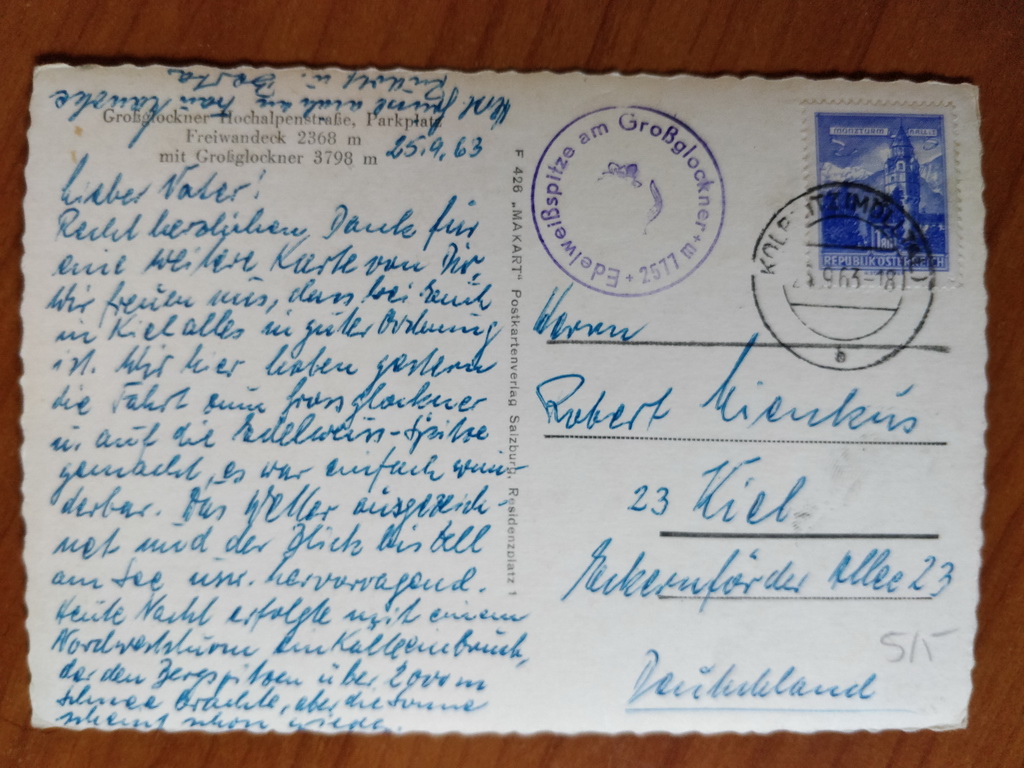 Großglockner Hochalpenstraße, Parkplatz
Freiwandeck 2368 m
mit Großglockner 3798 m
25.9.63
Lieber Vater!
Recht herzlichen Dank für
eine weitere Karte von Dir.
Wir freuen uns, dass bei Euch
in Kiel alles in guter Ordnung
ist. Wir hier haben gestern
die Fahrt zum Grossglockner
u. auf die Edelweiss-Spitze
gemacht, es war einfach wun-
derbar. Das Wetter ausgezeich-
net und der Blick bis Zell
am See usw. hervorragend.
Heute Nacht erfolgte mit einem
Nordweststurm ein Kälteeinbruch,
der den Bergspitzen über 2000 m
Schnee brachte, aber die Sonne
scheint schon wieder.
Rudolf u.
F 426 „MAKART" Postkartenverlag Salzburg, Residenzplatz 1
Edelweißspitze am Großglockner + 2577 m +
MÜNZTURM HALL I. T.
S 1.80
REPUBLIK ÖSTERREICH
9.63-18
b
Herrn
Robert Mienkus
23 Kiel
Eckernförder Allee 23
Deutschland
5/5